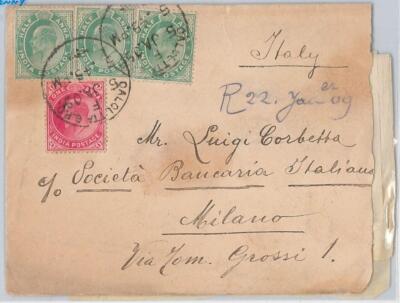 HALF ANNA
INDIA POSTAGE
HALF ANNA
HALF ANNA
INDIA POSTAGE
CALCUTTA G.P.O.
ONE
INDIA POSTAGE
Italy
R 22. Jan er 09
Mr. Luigi Corbetta
c/o Società Bancaria Italiana
Milano
Via Tom. Grossi 1.